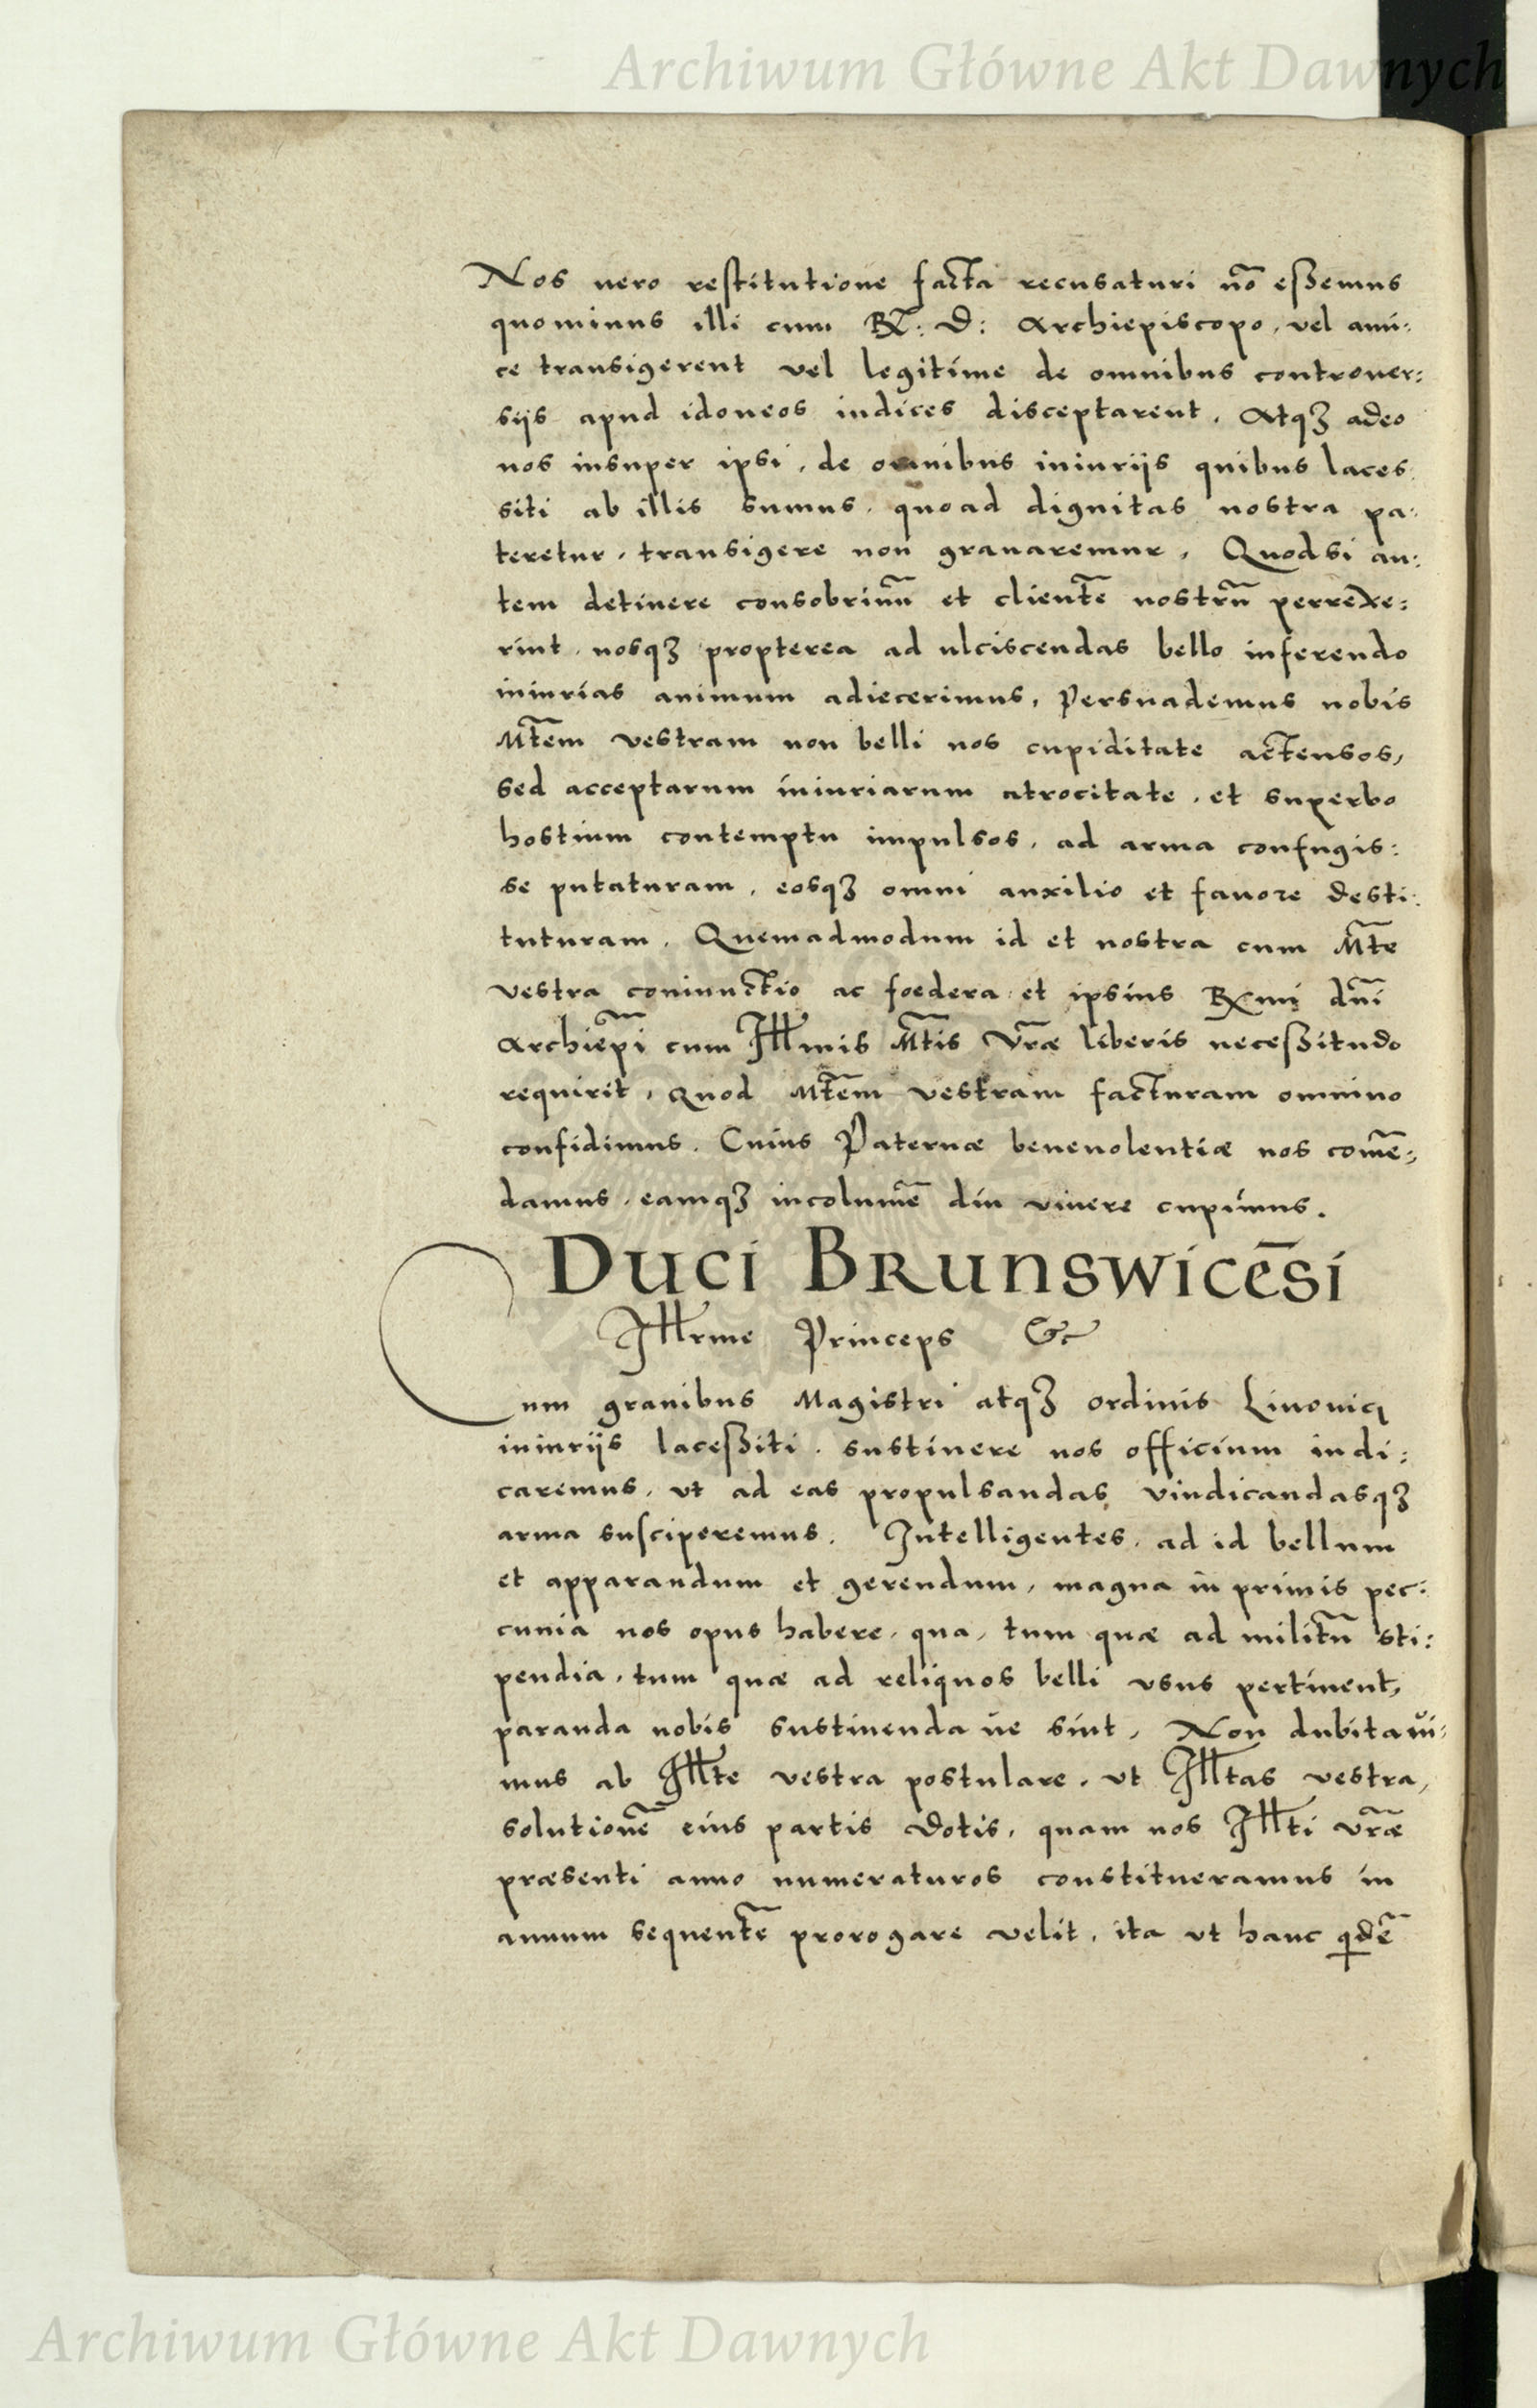 Archiwum Główne Akt Dawnych
Nos vero restitutione facta recusaturi nõ essemus
quominus illi cum Rx: D: Archiepiscopo, vel ami:
ce transigerent vel legitime de omnibus controver:
sijs apud idoneos iudices disceptarent. Atq3 adeo
nos insuper ipsi, de omnibus iniurijs quibus laces
siti ab illis sumus, quoad dignitas nostra pa:
teretur, transigere non gravaremur. Quodsi au:
tem detinere consobrinũ et clientẽ nostrũ perrexe:
rint, nosq3 propterea ad ulciscendas bello inferendo
iniurias animum adiecerimus, Persuademus nobis
Mt̃em vestram non belli nos cupiditate actensos,
sed acceptarum iniuriarum atrocitate, et superbo
hostium contemptu impulsos, ad arma confugis:
se putaturam, eosq3 omni auxilio et favore desti:
tuturam. Quemadmodum id et nostra cum Mt̃e
vestra coniunctio ac foedera et ipsius Rxmi dñi
Archiep̃i cum Illmis Mt̃is vr̃æ liberis necessitudo
requirit, Quod Mt̃em vestram facturam omnino
confidimus. Cuius Paternæ benevolentiæ nos com̃e:
damus, eamq3 incolumẽ diu vivere cupimus.
Duci Brunswicẽsi
Illrme Princeps &c
Cum gravibus Magistri atq3 ordinis Livonici
iniurijs lacessiti, sustinere nos officium iudi:
caremus, ut ad eas propulsandas vindicandasq3
arma susciperemus. Intelligentes, ad id bellum
et apparandum et gerendum, magna in primis pec:
cunia nos opus habere, qua, tum quæ ad militũ sti:
pendia, tum quæ ad reliquos belli usus pertinent,
paranda nobis sustinenda ve sint, Non dubitavi:
mus ab Illte vestra postulare, ut Illtas vestra,
solutionẽ eius partis dotis, quam nos Illti vr̃æ
præsenti anno numeraturos constitueramus in
annum sequentẽ prorogare velit, ita ut hanc qidẽ
Archiwum Główne Akt Dawnych